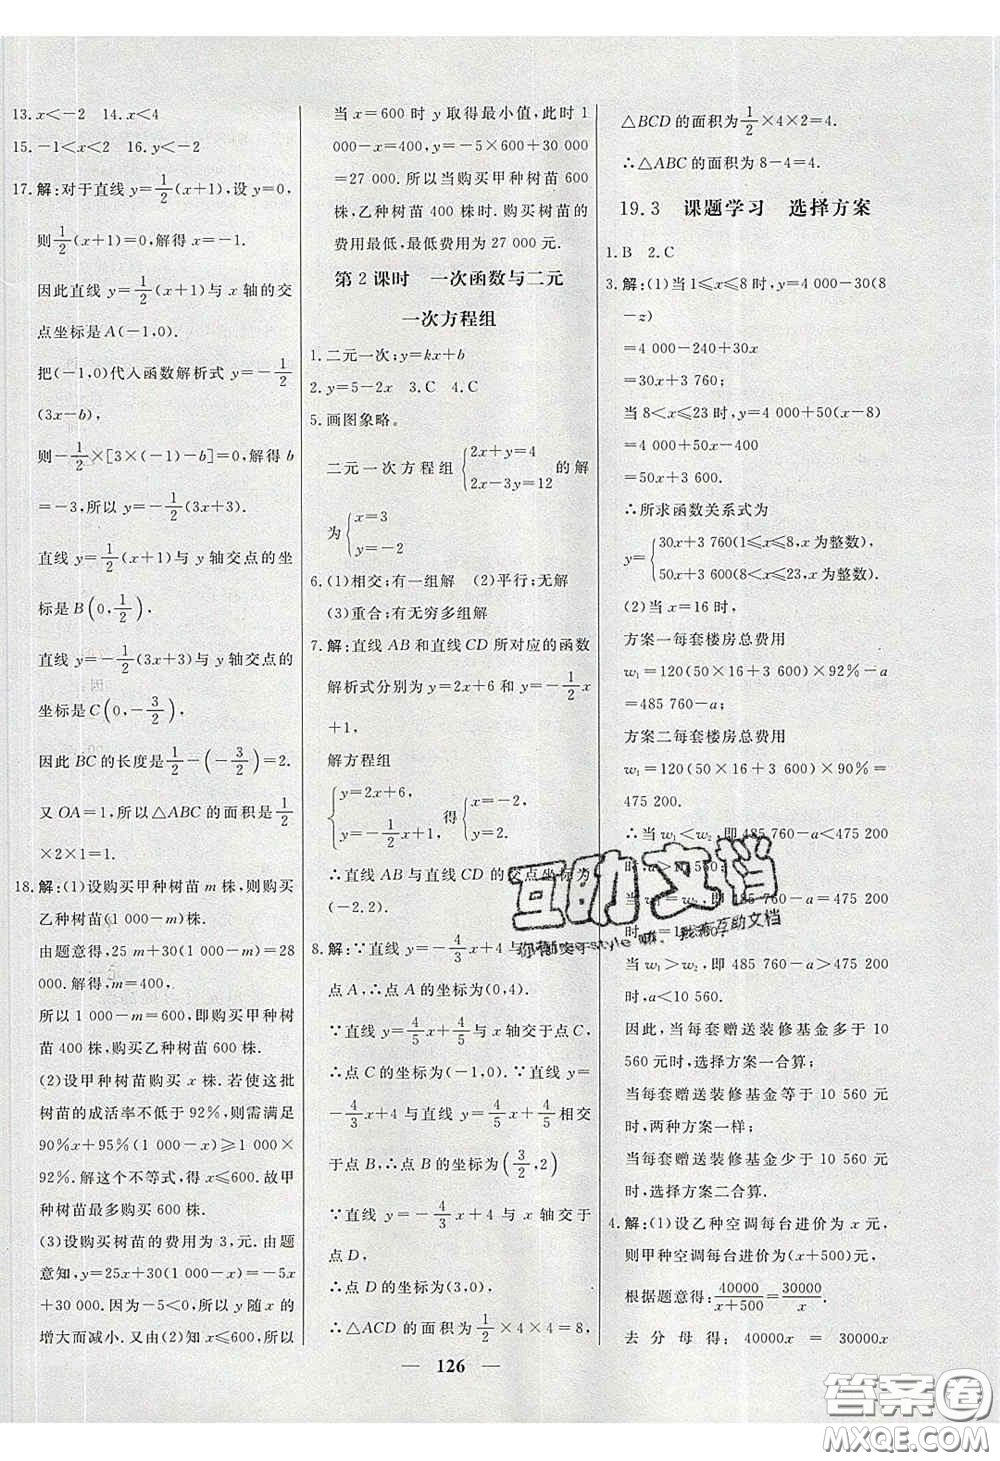 13. x<-2　14. x<4
15. -1<x<2　16. y<-2
17. 解:对于直线 y=1/2(x+1),设 y=0,
则1/2(x+1)=0,解得 x=-1.
因此直线 y=1/2(x+1)与 x 轴的交
点坐标是 A(-1,0).
把(-1,0)代入函数解析式 y=-1/2
(3x-b),
则-1/2×[3×(-1)-b]=0,解得 b
=-3,所以 y=-1/2(3x+3).
直线 y=1/2(x+1)与 y 轴交点的坐
标是 B(0,1/2),
直线 y=-1/2(3x+3)与 y 轴交点的
坐标是 C(0,-3/2),
因此 BC 的长度是1/2-(-3/2)=2.
又 OA=1,所以△ABC 的面积是1/2
×2×1=1.
18. 解:(1)设购买甲种树苗 m 株,则购买
乙种树苗(1 000-m)株.
由题意得,25 m+30(1 000-m)=28
000.解得 m=400,
所以 1 000-m=600,即购买甲种树
苗 400 株,购买乙种树苗 600 株.
(2)设甲种树苗购买 x 株.若使这批
树苗的成活率不低于 92%,则需满足
90%x+95%(1 000-x)≥1 000×
92%.解这个不等式,得 x≤600.故甲
种树苗最多购买 600 株.
(3)设购买树苗的费用为 3,元.由题
意知,y=25x+30(1 000-x)=-5x
+30 000.因为-5<0,所以 y 随 x 的
增大而减小.又由(2)知 x≤600,所以
当 x=600 时 y 取得最小值,此时 1
000-x=400,y=-5×600+30 000
=27 000.所以当购买甲种树苗 600
株,乙种树苗 400 株时.购买树苗的
费用最低,最低费用为 27 000 元.
第 2 课时　一次函数与二元
一次方程组
1. 二元一次;y=kx+b
2. y=5-2x　3. C　4. C
5. 画图象略。
二元一次方程组{2x+y=4 2x-3y=12 的解
为{x=3 y=-2
6. (1)相交;有一组解　(2)平行;无解
(3)重合;有无穷多组解
7. 解:直线 AB 和直线 CD 所对应的函数
解析式分别为 y=2x+6 和 y=-1/2x
+1,
解方程组
{y=2x+6, y=-1/2x+1, 得{x=-2, y=2.
∴直线 AB 与直线 CD 的交点坐标为
(-2,2).
8. 解:∵直线 y=-4/3x+4 与 y 轴交于
点 A,∴点 A 的坐标为(0,4).
∵直线 y=4/5x+4/5与 x 轴交于点 C,
∴点 C 的坐标为(-1,0).
∵直线 y=
-4/3x+4 与直线 y=4/5x+4/5相交
于点 B,∴点 B 的坐标为(3/2,2)
∵直线 y=-4/3x+4 与 x 轴交于
点 D,
∴点 D 的坐标为(3,0),
∴△ACD 的面积为1/2×4×4=8,
△BCD 的面积为1/2×4×2=4.
∴△ABC 的面积为 8-4=4.
19.3　课题学习　选择方案
1. B　2. C
3. 解:(1)当 1≤x≤8 时,y=4 000-30(8
-z)
=4 000-240+30x
=30x+3 760;
当 8<x≤23 时,y=4 000+50(x-8)
=4 000+50x-400
=50x+3 600.
∴所求函数关系式为
y={30x+3 760(1≤x≤8,x 为整数), 50x+3 600(8≤x≤23,x 为整数).
(2)当 x=16 时,
方案一每套楼房总费用
w₁=120(50×16+3 600)×92%-a
=485 760-a;
方案二每套楼房总费用
w₁=120(50×16+3 600)×90%=
475 200.
∴当 w₁<w₂,即 485 760-a<475 200
时,
当 w₁>w₂,即 485 760-a>475 200
时,a<10 560.
因此,当每套赠送装修基金多于 10
560元时,选择方案一合算;
当每套赠送装修基金等于 10 560 元
时,两种方案一样;
当每套赠送装修基金少于 10 560 元
时,选择方案二合算.
4. 解:(1)设乙种空调每台进价为 x 元,
则甲种空调每台进价为(x+500)元.
根据题意得:40000/(x+500)=30000/x.
去分母得:40000x = 30000x
— 126 —
互助文档
答案圈
MXQE.COM